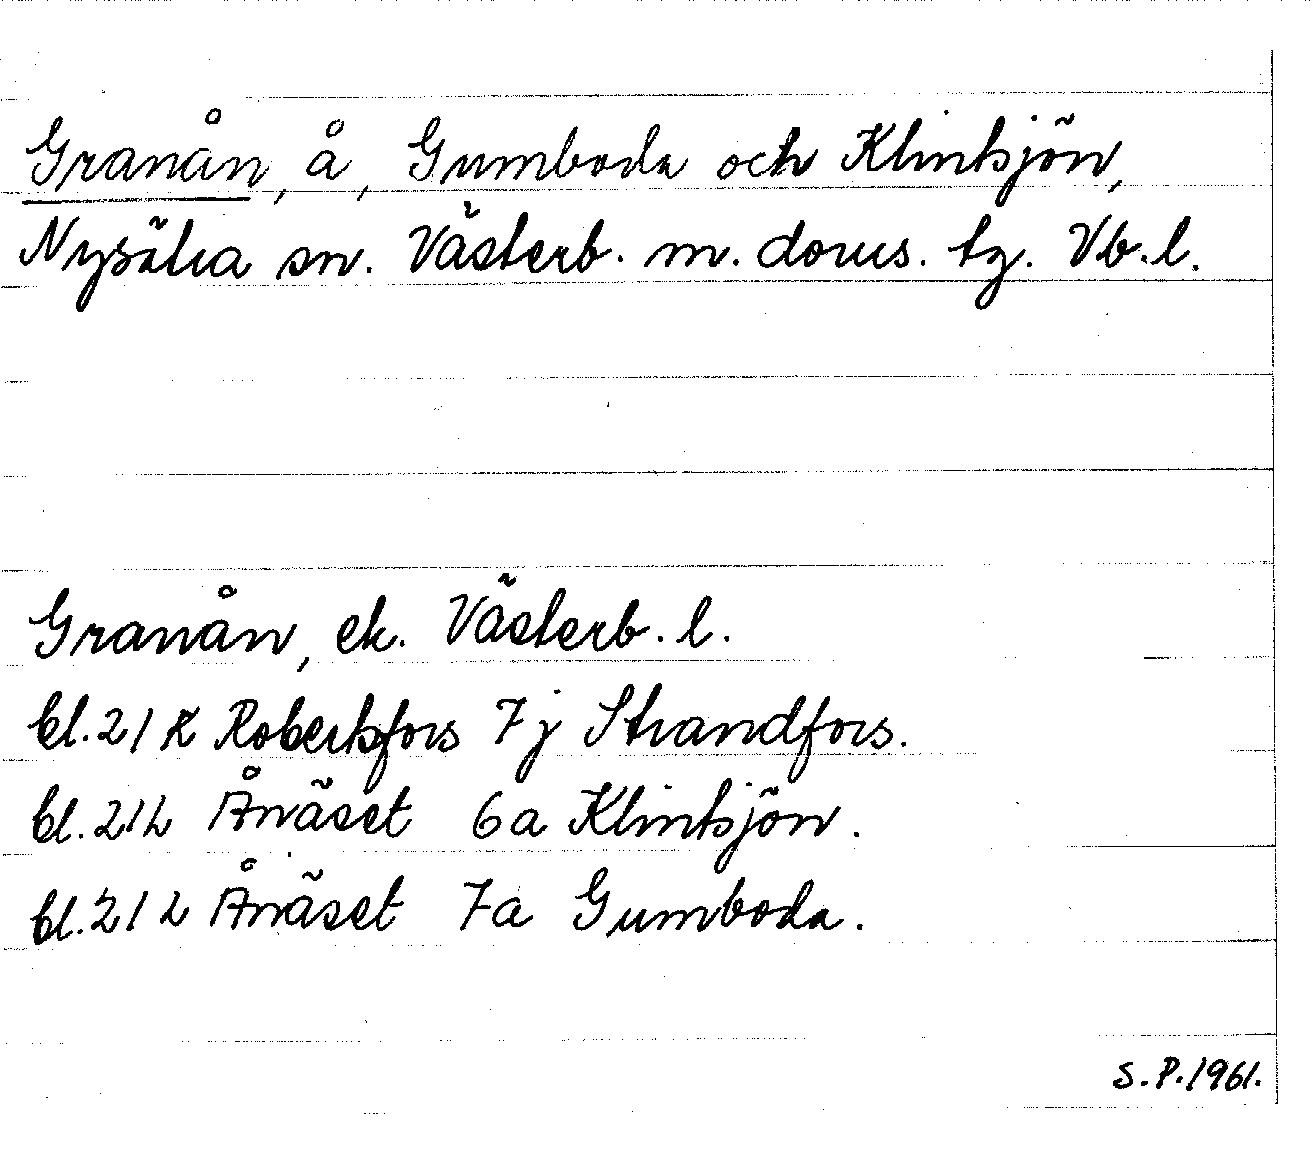 Granån, å, Gumboda och Klintsjön,
Nysätra sn. Västerb. m. doms. tg. Vb.l.
Granån, ek. Västerb. l.
bl. 21 K Robertsfors 7j Strandfors.
bl. 21L Ånäset 6a Klintsjön.
bl. 21L Ånäset 7a Gumboda.
S.P. 1961.